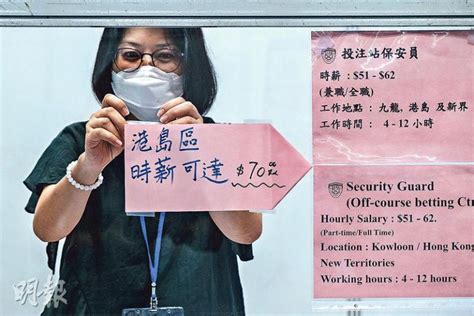 港島區
時薪可達 $70.00
投注站保安員
時薪 : $51 - $62
(兼職/全職)
工作地點 : 九龍, 港島 及 新界
工作時間 : 4 - 12 小時
Security Guard
(Off-course betting Ctr
Hourly Salary : $51 - 62.
(Part-time/Full Time)
Location : Kowloon / Hong Kong
New Territories
Working hours : 4 - 12 hours
明報